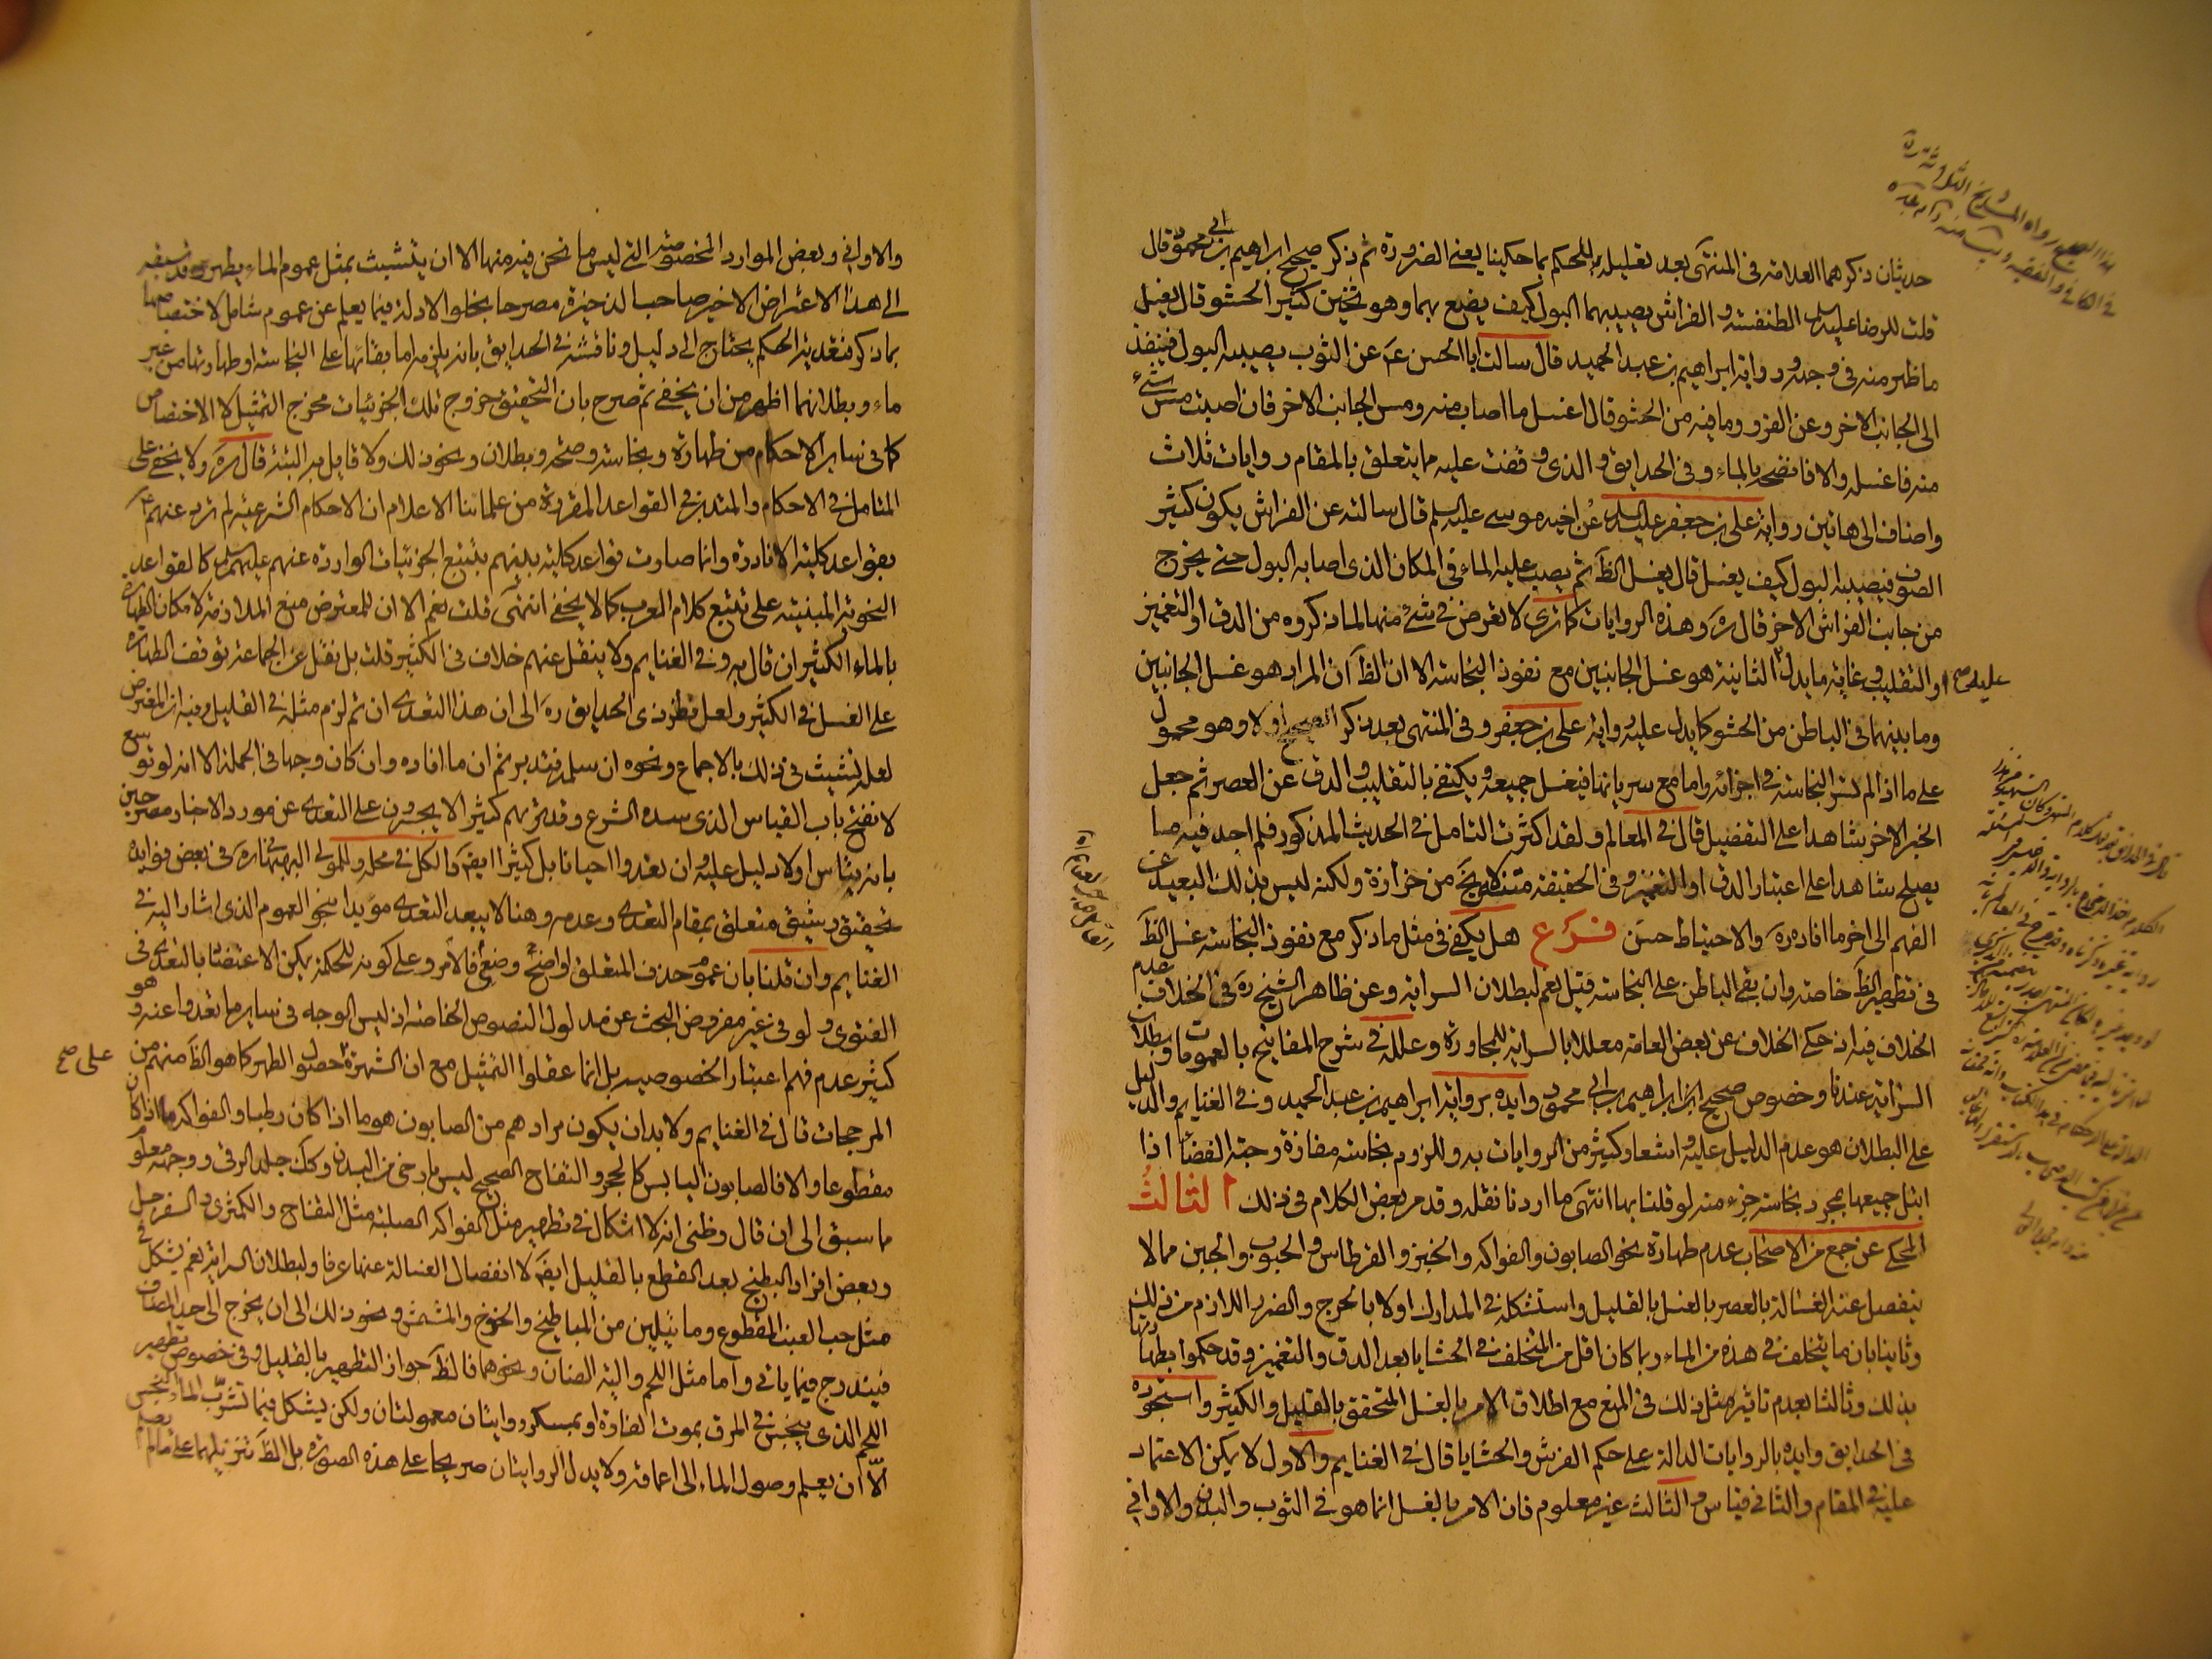 حديثان ذكرهما العلامة في المنتهى بعد تعليله للحكم بما حكينا يعني الضرورة ثم ذكر صحيح ابراهيم بن ابي محمود قال
قلت للرضا عليه السلم الطنفسة والفراش يصيبهما البول كيف يصنع بهما وهو ثخين كثير الحشو قال يغسل
ما ظهر منه في وجهه ورواية ابراهيم بن عبد الحميد قال سالت ابا الحسن عَ عن الثوب يصيبه البول فينفذ
الى الجانب الاخر وعن الفرو وما فيه من الحشو قال اغسل ما اصاب منه ومس الجانب الاخر فان اصبت مس شيء
منه فاغسله والا فانضحه بالماء وفي الحدايق والذي وقفت عليه مما يتعلق بالمقام روايات ثلاث
واضاف الى هاتين رواية علي بن جعفر عليه السلم عن اخيه موسى عليه السلم قال سالته عن الفراش يكون كثير
الصوف فيصيبه البول كيف يغسل قال يغسل الظَ ثم يصب عليه الماء في المكان الذي اصابه البول حتى يخرج
من جانب الفراش الاخر قال رهَ وهذه الروايات كما ترى لا تعرض في شئ منها لما ذكروه من الدق او التغميز
والتقليب وغاية ما يدل عليه صح الثانية هو غسل الجانبين مع نفوذ النجاسة الا ان الظَ ان المراد هو غسل الجانبين
وما بينهما في الباطن من الحشو كما يدل عليه رواية علي بن جعفر وفي المنتهى بعد ذكر الصحيح اولا وهو محمول
على ما اذا لم تسر النجاسة في اجزائه واما مع سريانها فيغسل جميعه ويكتفي بالتقليب والدق عن العصر ثم جعل
الخبر الاخر شاهدا على التفصيل قال في المعالم ولقد اكثرت التامل في الحديث المذكور فلم اجد فيه ما
يصلح شاهدا على اعتبار الدق او التغميز وفي الحقيقة متنه لا يخ من حزازة ولكنه ليس بذلك البعيد عن
الفهم الى اخر ما افاده رهَ والاحتياط حسن فرع هل يكفي في مثل ما ذكر مع نفوذ النجاسة غسل الظَ
في تطهير الظَ خاصة وان بقي الباطن على النجاسة قيل نعم لبطلان السراية وعن ظاهر الشيخ رهَ في الخلاف عدم
الخلاف فيه اذ حكى الخلاف عن بعض العامة معللا بالسراية للمجاورة وعلله في شرح المفاتيح بالعمومات وبطلان
السراية عندنا وخصوص صحيح ابراهيم بن ابي محمود وايده برواية ابراهيم بن عبد الحميد وفي الغنايم والدليل
على البطلان هو عدم الدليل عليه واشعار كثير من الروايات به وللزوم نجاسة مفازة وجبة الفضا اذا
ابتل جميعها بمجرد نجاسة جزء منه لو قلنا بها انتهى ما اردنا نقله وقد مر بعض الكلام في ذلك الثالث
المحكي عن جمع من الاصحاب عدم طهارة نحو الصابون والفواكه والخبز والقرطاس والحبوب والجبن مما لا
ينفصل عنه الغسالة بالعصر بالغسل بالقليل واستشكله في المدارك اولا بالحرج والضرر اللازم من ذلك
وثانيا بان ما يتخلف في هذه من الماء ربما كان اقل من المتخلف في الحشايا بعد الدق والتغميز وقد حكموا بطهارتها
بذلك وثالثا بعدم تاثير مثل ذلك في المنع مع اطلاق الامر بالغسل المتحقق بالقليل والكثير واستجوده
في الحدايق وايده بالروايات الدالة على حكم الفرش والحشايا قال في الغنايم والاول لا يمكن الاعتماد
عليه في المقام والثاني قياس والثالث غير معلوم فان الامر بالغسل انما هو في الثوب والبدن والاواني
والاواني وبعض الموارد المخصوصة التي ليس ما نحن فيه منها الا ان يتشبث بمثل عموم الماء يطهر وقد سبقه
الى هذا الاعتراض الاخير صاحب الذخيرة مصرحا بخلو الادلة فيما يعلم عن عموم شامل لاختصاصها
بما ذكر فتعدية الحكم يحتاج الى دليل وناقشه في الحدايق بانه يلزمه اما بقائها على النجاسة او طهارتها من غير
ماء وبطلانهما اظهر من ان يخفى ثم صرح بان التحقيق خروج تلك الجزئيات مخرج التمثيل لا الاختصاص
كما في ساير الاحكام من طهارة ونجاسة وصحة وبطلان ونحو ذلك ولا قايل به البتة قال رهَ ولا يخفى على
المتامل في الاحكام والمتدبر في القواعد المقررة من علمائنا الاعلام ان الاحكام الشرعية لم ترد عنهم عَ
بقواعد كلية الا نادرة وانما صارت قواعد كلية بينهم بتتبع الجزئيات الواردة عنهم عليهم السلم كالقواعد
النحوية المبنية على تتبع كلام العرب كما لا يخفى انتهى قلت نعم الا ان للمعترض منع الملازمة لامكان الطهارة
بالماء الكثير ان قال به وفي الغنايم ولا ينقل عنهم خلاف في الكثير قلت بل نقل عن الجماعة توقف الطهارة
على الغسل في الكثير ولعل نظر ذي الحدايق رهَ الى ان هذا التعدي ان تم لزم مثله في القليل وفيه ان المعترض
لعله تشبث في ذلك بالاجماع ونحوه ان سلم فتدبر ثم ان ما افاده وان كان وجها في الجملة الا انه لو توسع
لانفتح باب القياس الذي سده الشرع وقد تريهم كثيرا لا يجترون على التعدي عن مورد الاخبار مصرحين
بانه قياس او لا دليل عليه وان تعدوا احيانا بل كثيرا ايضَ والكل في محله وللمولى البهبهاني رهَ في بعض فوايده
تحقيق رشيق متعلق بمقام التعدي وعدمه وهنا لا يبعد التعدي مؤيدا بنحو العموم الذي اشار اليه في
الغنايم وان قلنا بان عموم حذف المتعلق واضح وضع فالامر وعلى كونه للحكمة يمكن الاعتضاد بالتعدي في
الفتوى ولو في غير مفروض البحث عن مدلول النصوص الخاصة اذ ليس الوجه في ساير ما تعدوا عنه وهو
كثير عدم فهم اعتبار الخصوصية بل انما عقلوا التمثيل مع ان الشهرة على صح حصول الطهر كما هو الظَ منهم من
المرجحات قال في الغنايم ولا بد ان يكون مرادهم من الصابون هو ما اذا كان رطبا والفواكه ما اذا كان
مقطوعا والا فالصابون اليابس كالحجر والتفاح الصحيح ليس بادون من البدن وكك جلد الرقي ووجهه معلوم
ما سبق الى ان قال وظني انه لا اشكال في تطهير مثل الفواكه الصلبة مثل التفاح والكمثرى والسفرجل
وبعض افراد البطيخ بعد القطع بالقليل ايضَ لانفصال الغسالة عنها عرفا ولبطلان السراية نعم يشكل في
مثل حب العنب المقطوع وما يليين من المباطيخ والخوخ والمشمش ونحو ذلك الى ان يخرج الى حد المضاف
فيندرج فيما ياتي واما مثل اللحم والية الضان ونحوهما فالظَ جواز التطهير بالقليل وفي خصوص تطهير
اللحم الذي ينجس في المرق بموت الفارة او بمسكر روايتان معمولتان ولكن يشكل فيما تشرب الماء النجس
الّا ان يعلم وصول الماء الى اعماقه ولا يدل الروايتان صريحا على هذه الصورة بل الظَ تنزيلهما على ما لم يعلم